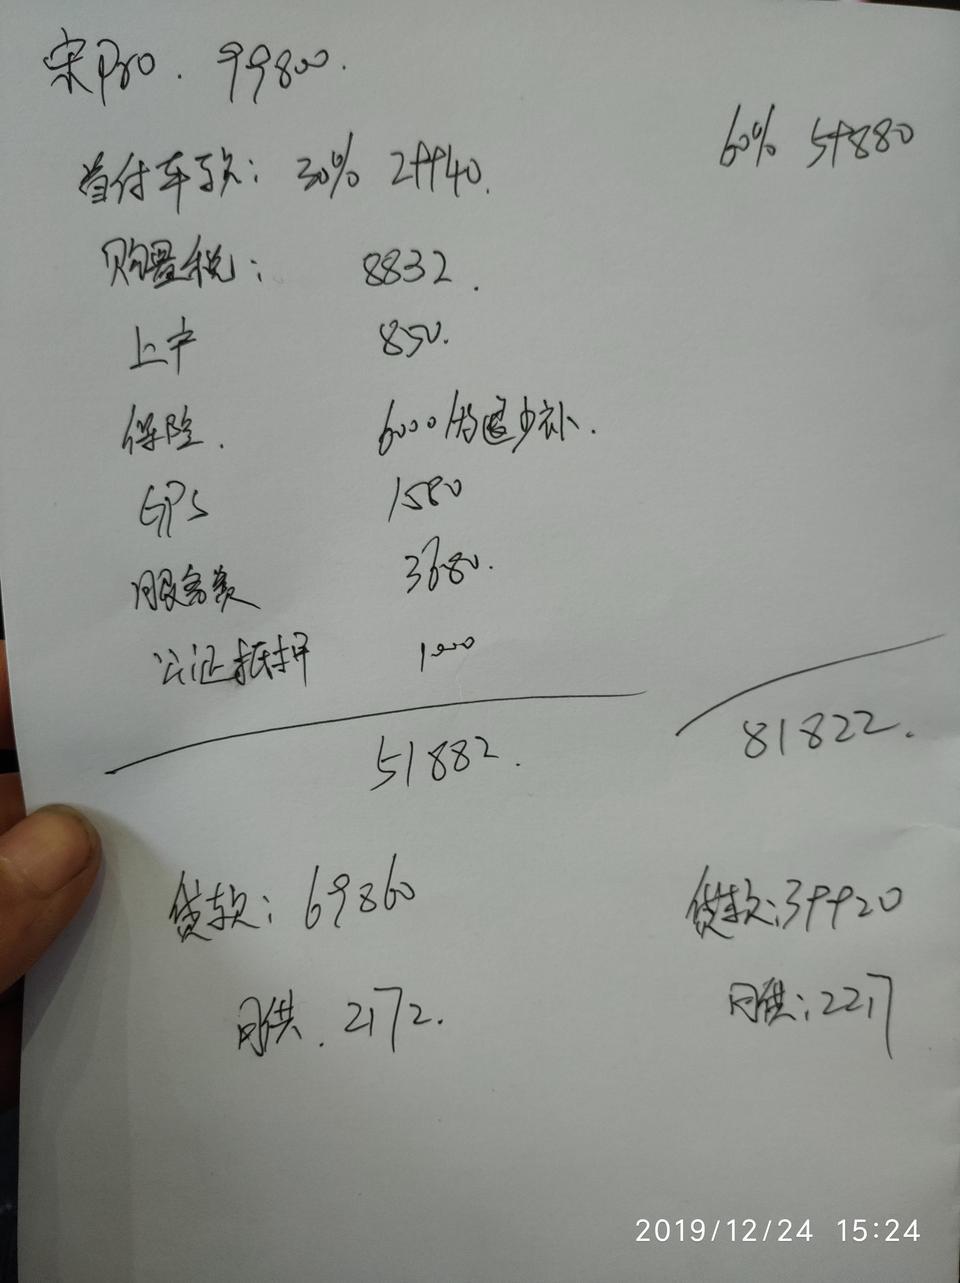 宋Pro. 99800.
60% 59880
首付车款: 30% 29940.
购置税: 8832.
上户 850.
保险. 6000/多退少补.
GPS 1580
服务费 3680.
公证抵押 1000
51882.
81822.
贷款: 69860
贷款: 39920
月供. 2172.
月供: 2217
2019/12/24 15:24